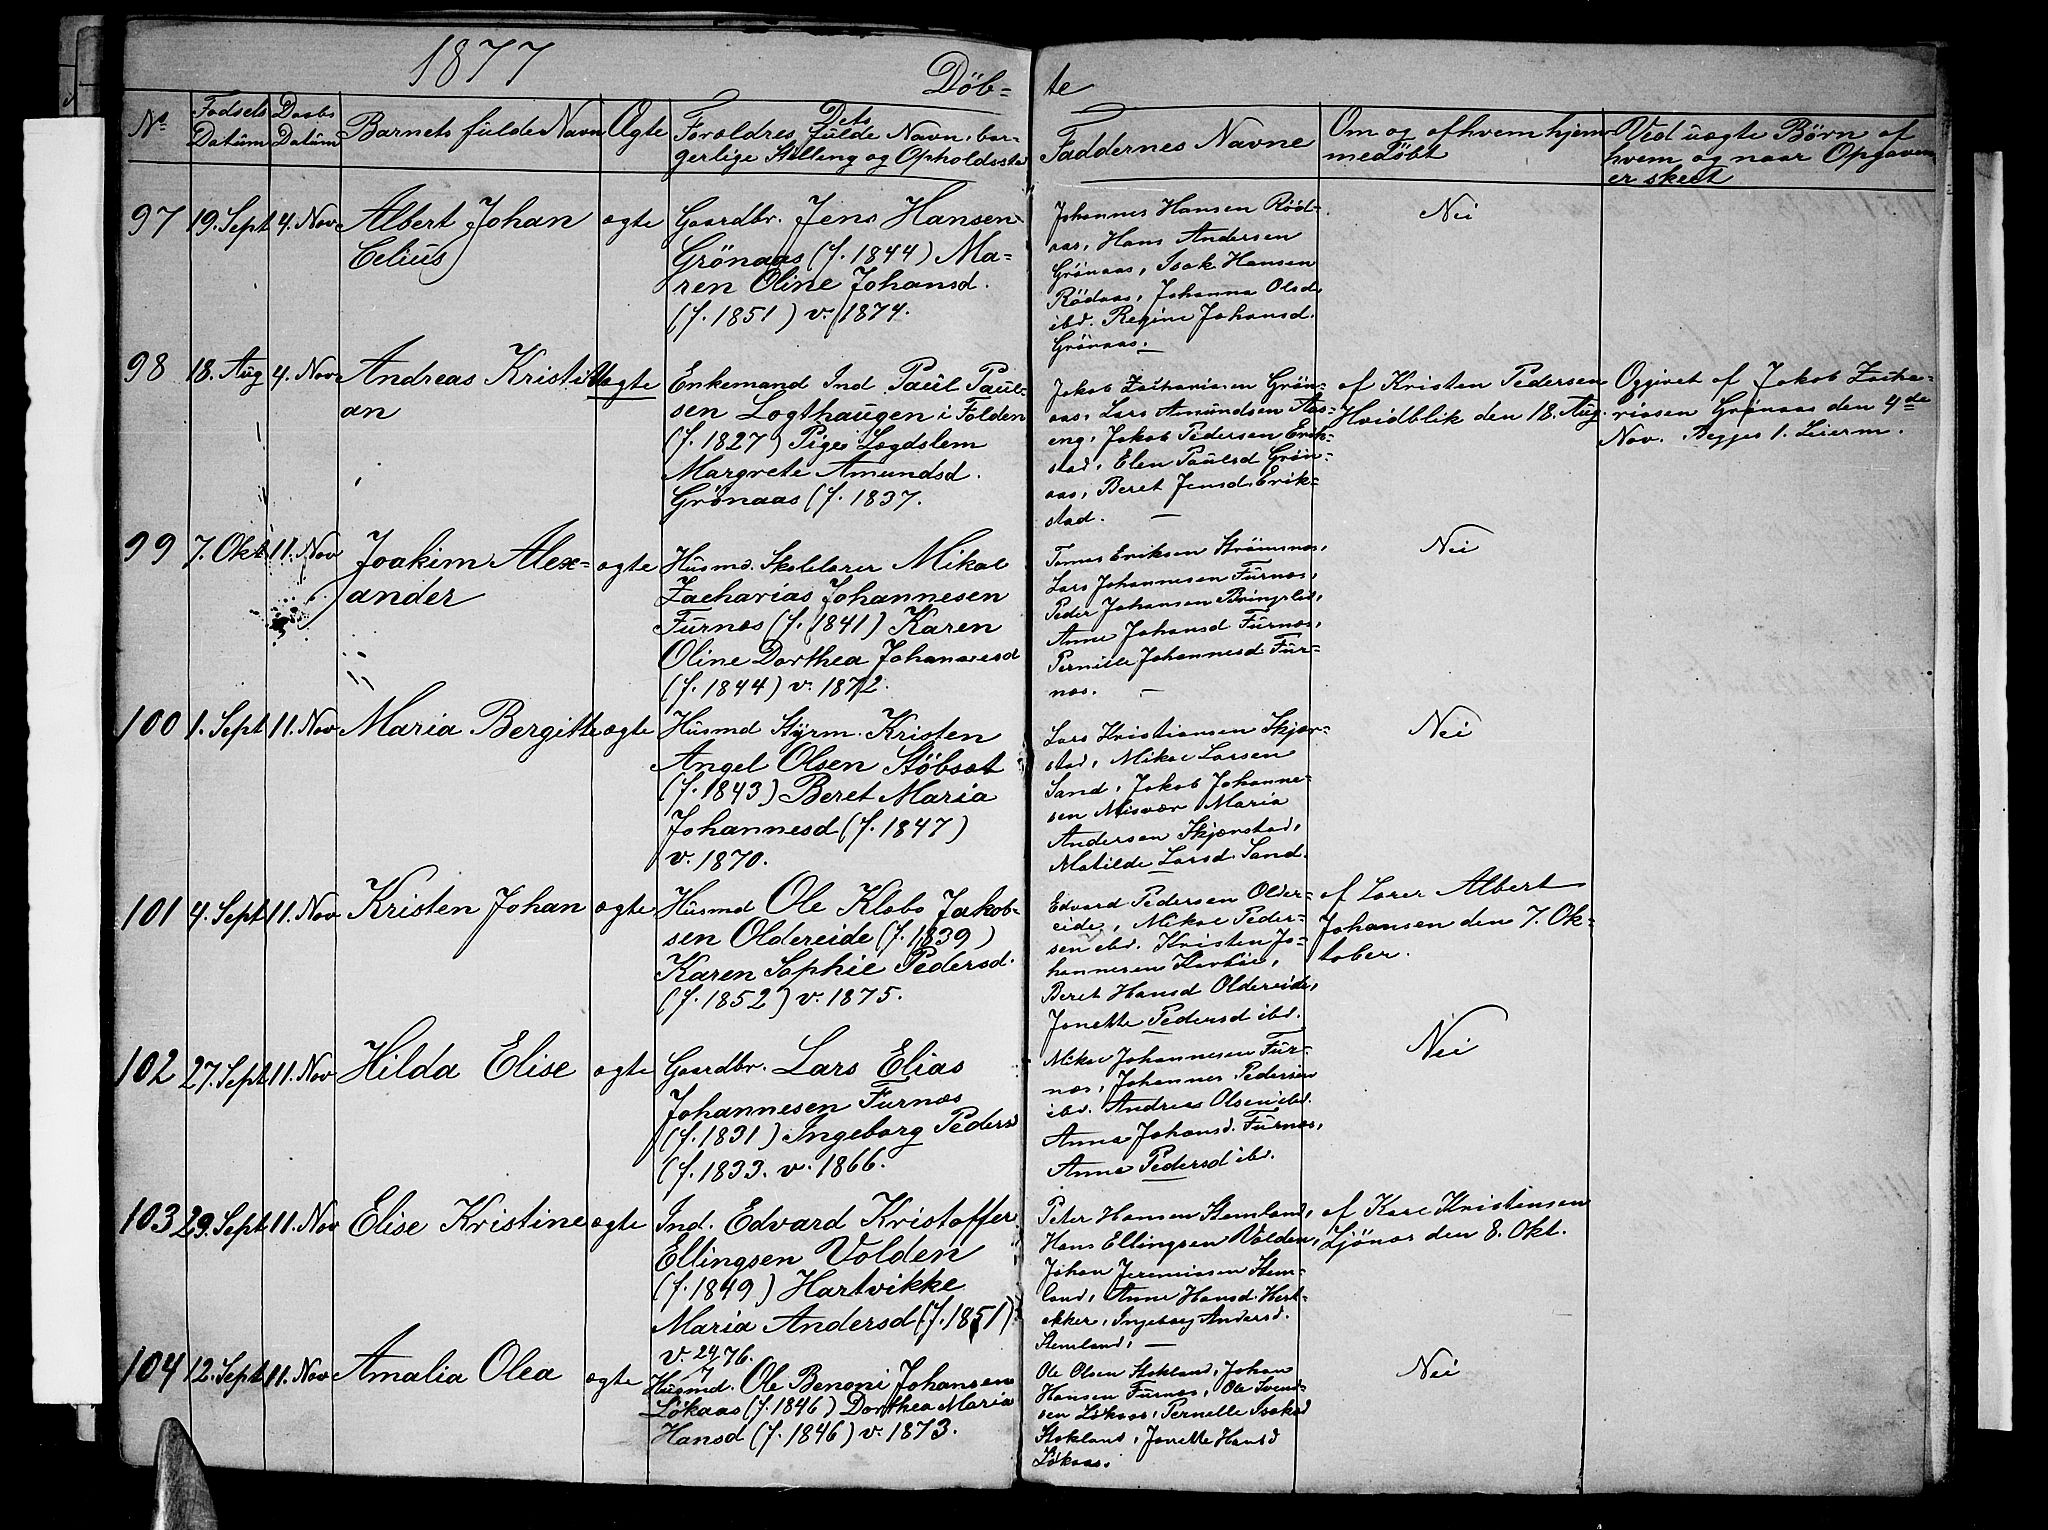 1877
Döb- te
No Fødsels Datum Daabs Datum Barnets fulde Navn Ægte Dets Foroldres fulde Navn, bor- gerlige Stilling og Opholdsste Faddernes Navne Om og af hvem hjem- medøbt Ved uægte Børn af hvem og naar Opgaven er skeet
97 19. Sept 4. Nov Albert Johan ægte Gaardbr. Jens Hansen
Celius Grönaas (f. 1844) Ma-
ren Oline Johansd.
(f. 1851) v. 1874.
Johannes Hansen Röd-
aas, Hans Andersen
Grönaas, Isak Hansen
Rödaas, Johanna Olsd
ibd. Regine Johansd.
Grönaas.
Nei
98 18. Aug 4. Nov Andreas Kristi- Uægte Enkemand Ind Paul Paul-
an sen Løgthaugen i Folden
(f. 1827) Pige Lægdslem
Margrete Amundsd.
Grönaas (f. 1837.
Jakob Zachariasen Grön-
aas, Lars Amundsen Aas-
eng, Jakob Pedersen Erik-
stad, Elen Paulsd Grön-
aas, Beret Jensd. Erik-
stad.
af Kristen Pedersen
Hvidblik den 18. Aug.
Opgivet af Jakob Zacha-
riasen Grönaas den 4de
Nov. Begges 1. Leierm.
99 7. Okt 11. Nov Joakim Alex- ægte Husmd. Skolelærer Mikal
ander Zacharias Johannesen
Furnes (f. 1841) Karen
Oline Dorthea Johannesd
(f. 1844) v. 1872.
Tomas Eriksen Strömsnes,
Lars Johannesen Furnes,
Peder Johansen Bringsli,
Anne Johansd Furnes,
Pernille Johannesd Fur-
nes.
Nei
100 1. Sept 11. Nov Maria Bergitte ægte Husmd Styrm. Kristen
Angel Olsen Støbset
(f. 1843) Beret Maria
Johannesd (f. 1847)
v. 1870.
Lars Kristiansen Skjer-
stad, Mikal Larsen
Sand, Jakob Johanne-
sen Misvær Maria
Andersen Skjerstad,
Matilde Larsd Sand.
Nei
101 4. Sept 11. Nov Kristen Johan ægte Husmd Ole Klæbo Jakob-
sen Oldereide (f. 1839)
Karen Sophie Pedersd.
(f. 1852) v. 1875.
Edvard Pedersen Older-
eide, Mikal Peder-
sen ibd. Kristen Jo-
hannesen
Beret Hansd Oldereide,
Jonette Pedersd ibd.
af Lærer Albert
Johansen den 7. Ok-
tober.
102 27. Sept 11. Nov Hilda Elise ægte Gaardbr. Lars Elias
Johannesen Furnes
(f. 1831) Ingeborg Pedersd
(f. 1833. v. 1866.
Mikal Johannesen Fur-
nes, Johannes Pedersen
ibd. Andreas Olsen ibd.
Anna Johansd. Furnes,
Anne Pedersd ibd.
Nei
103 29. Sept 11. Nov Elise Kristine ægte Ind. Edvard Kristoffer
Ellingsen Volden
(f. 1849) Hartvikke
Maria Andersd (f. 1851)
v. 29/7 76.
Peter Hansen Stemland,
Hans Ellingsen Volden,
Johan Jeremiasen Stem-
land, Anne Hansd. Hest-
ekker, Ingeborg Andersd.
Stemland,
af Karl Kristensen
Ljönes den 8. Okt.
104 12. Sept 11. Nov Amalia Olea ægte Husmd. Ole Benoni Johansen
Lökaas (f. 1846) Dorthea Maria
Hansd (f. 1846) v. 1873.
Ole Olsen Stokland, Johan
Hansen Furnes, Ole Svend-
sen Lökaas, Pernelle Isaksd
Stokland, Jonette Hansd
Lökaas.
Nei